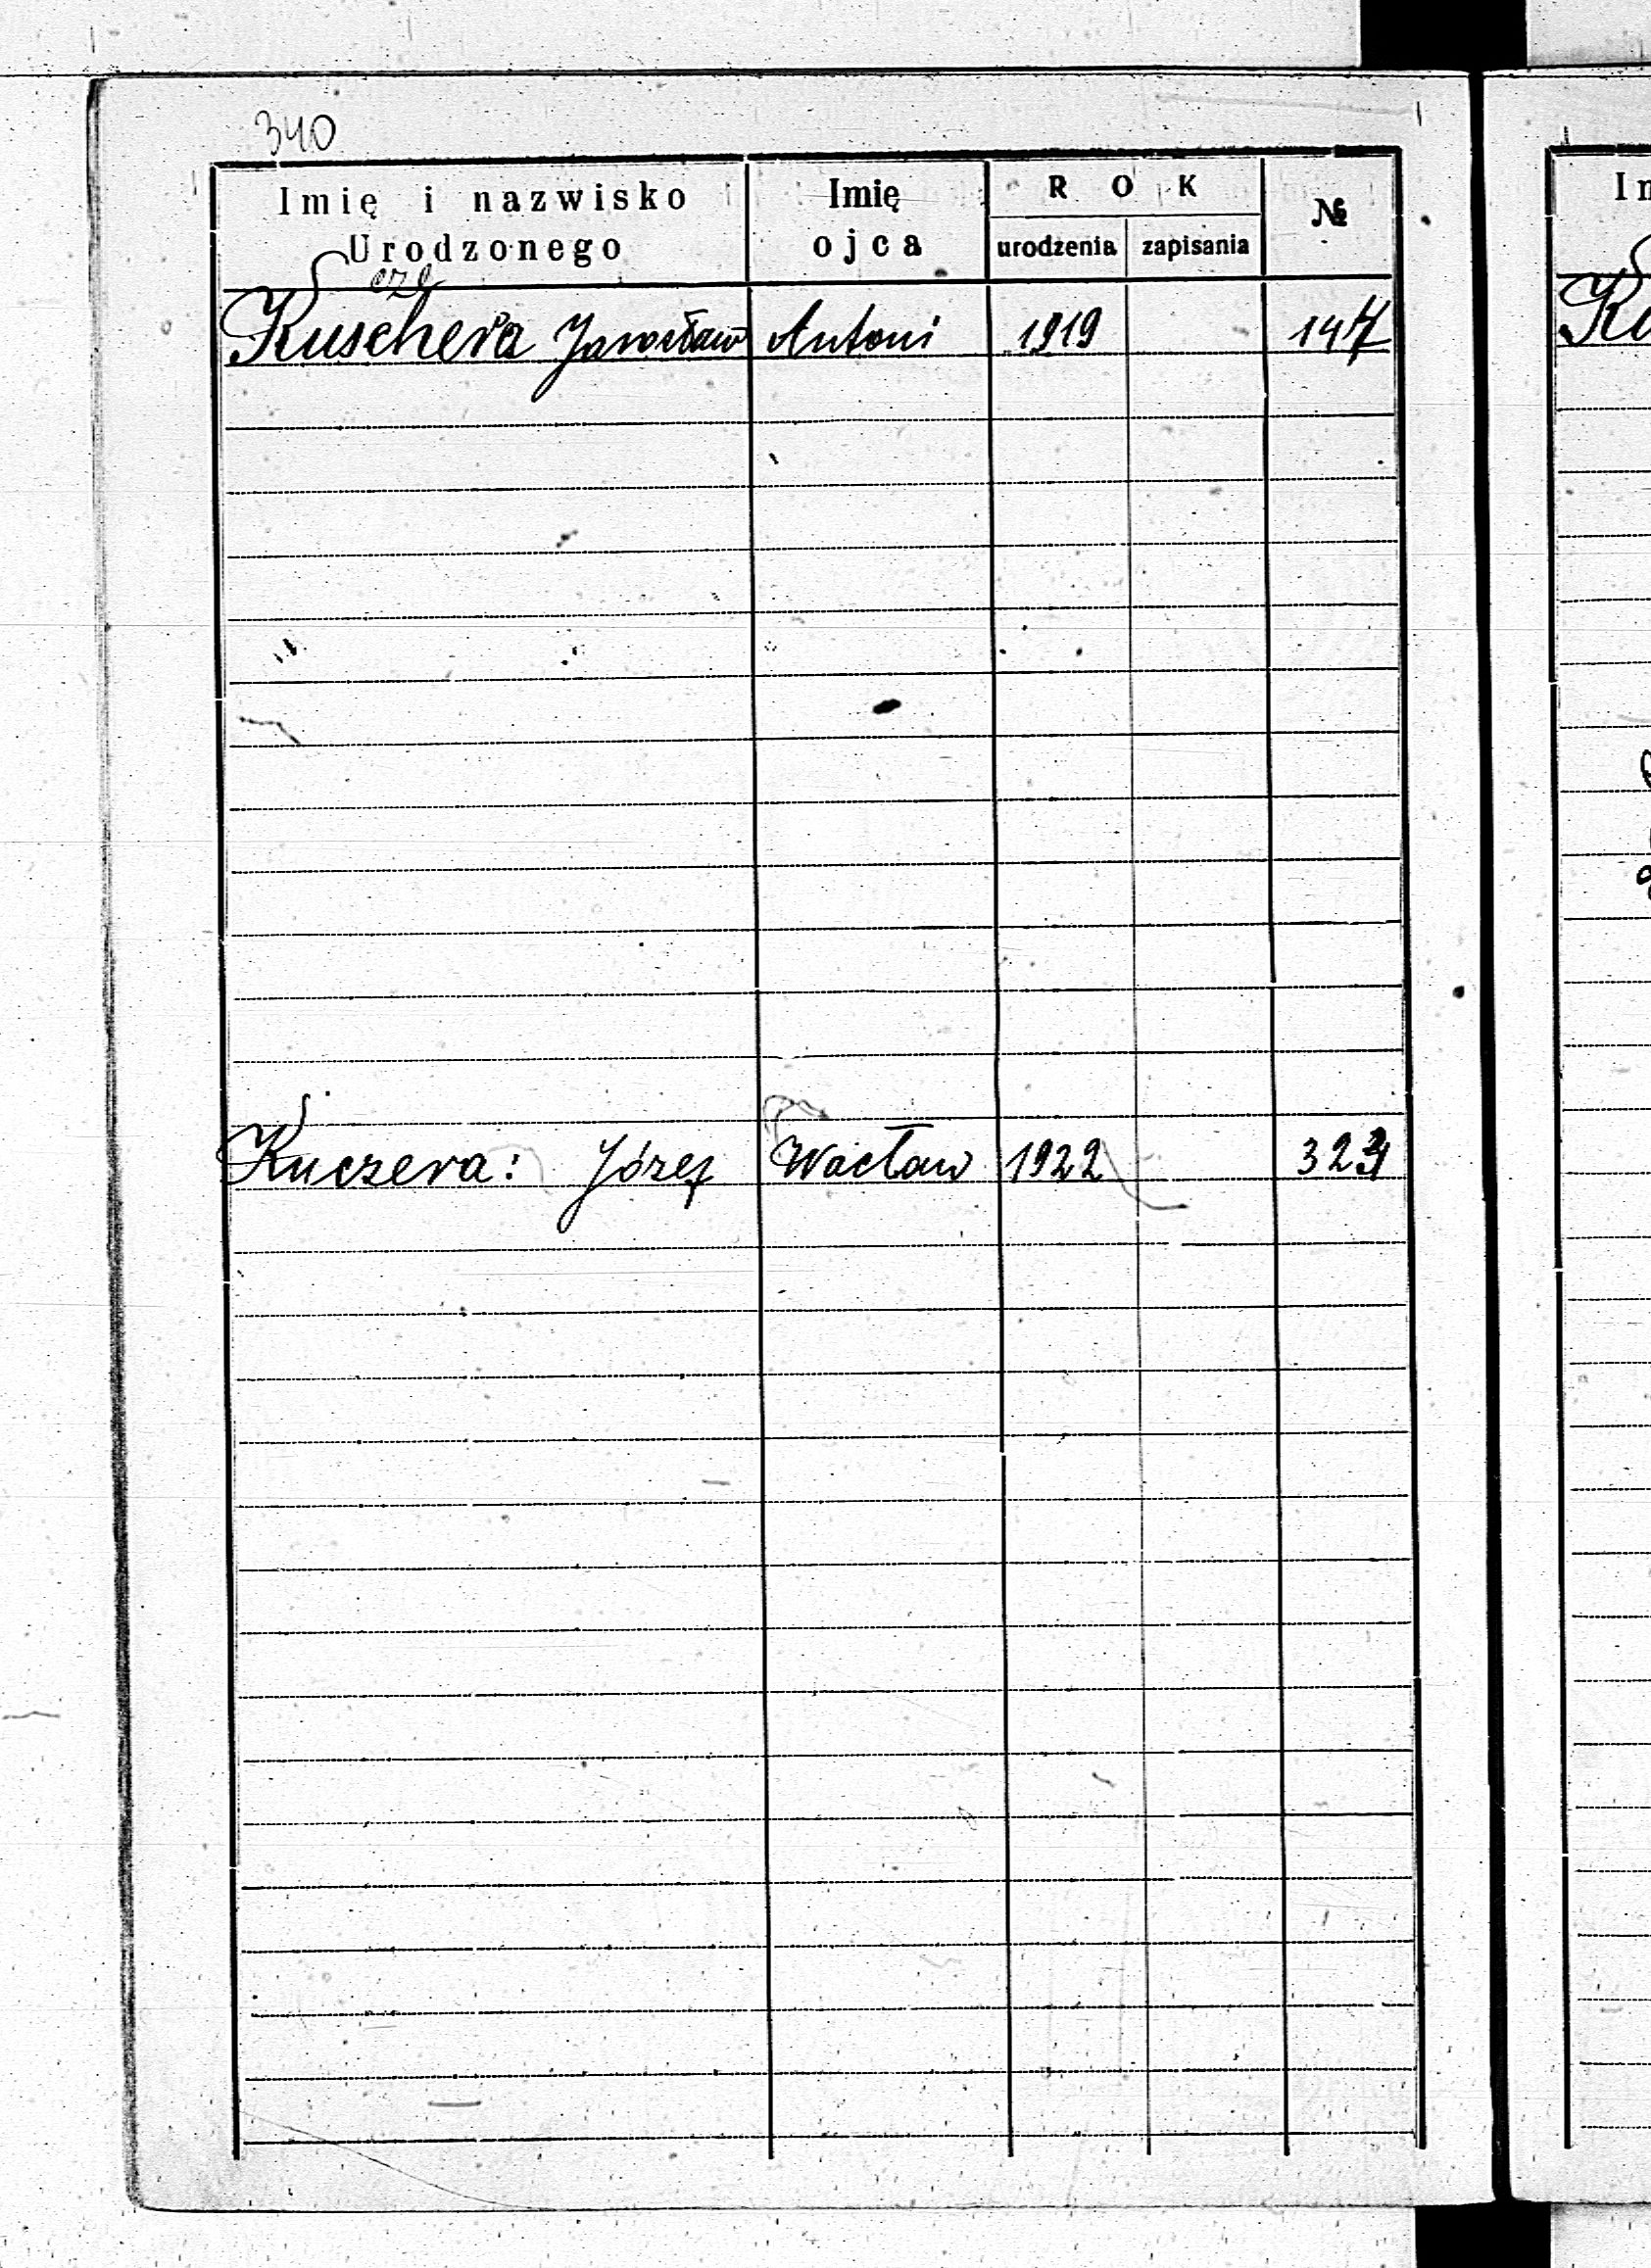 340
Imię i nazwisko Urodzonego
Imię ojca
ROK
urodzenia
zapisania
№
cze
Kuschera Jarosław Antoni 1919 147
Kuczera: Józef Wacław 1922
Ku